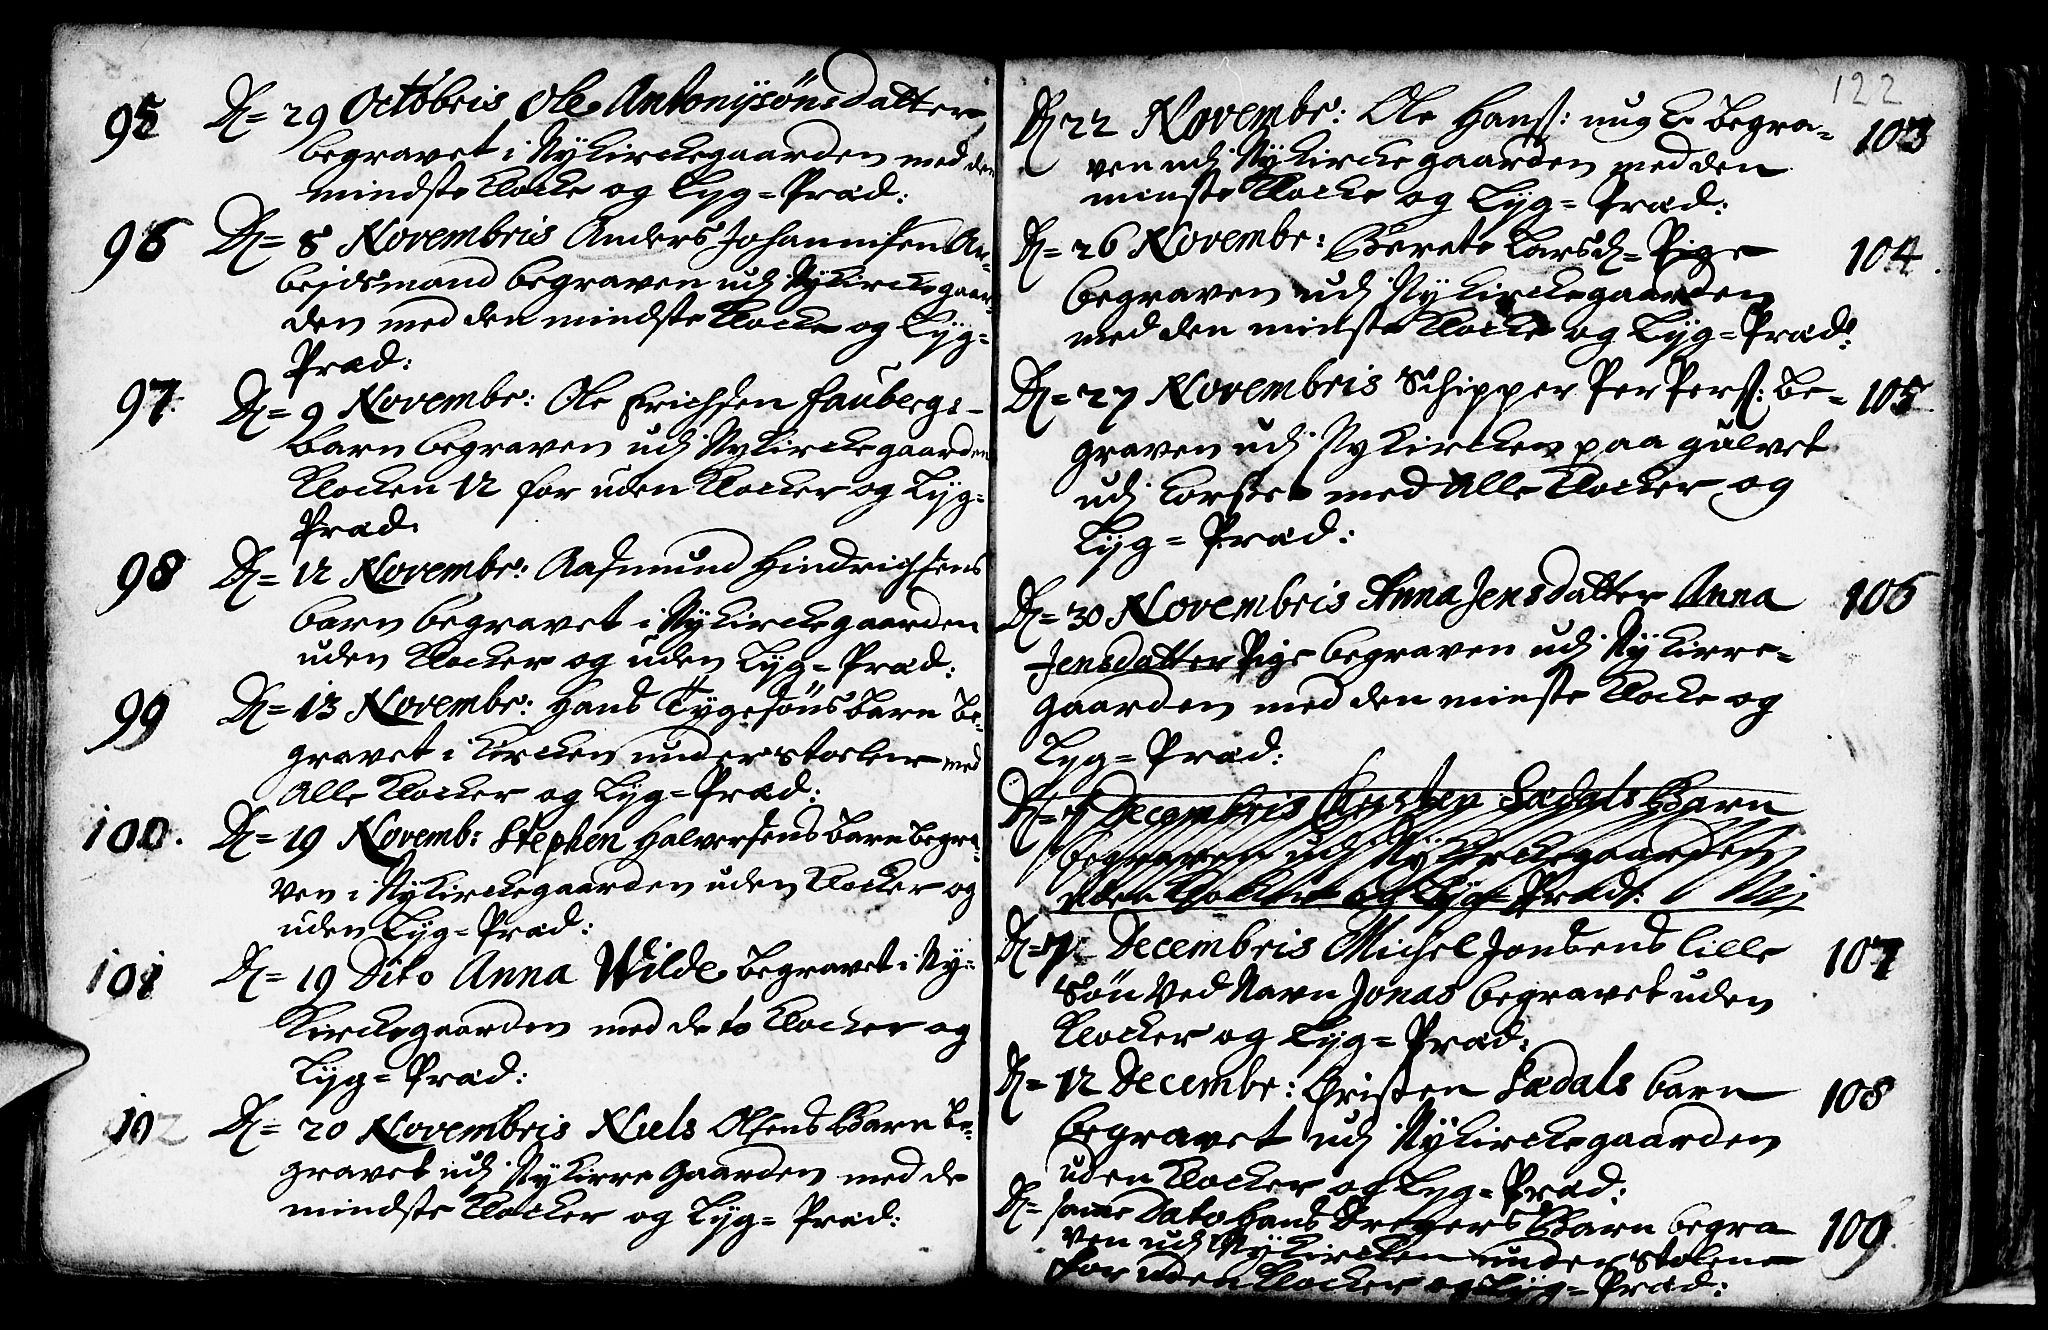 95 D= 29 Octobris Ole Antonysøns datter
begravet i Nykirckegaarden med den
mindste Klocke og Lyg=Præd:
96 D= 8 Novembris Anders Johannisen Ar-
bejdsmand begraven udj Nykirckegaar-
den med den mindste Klocke og Lyg=
Præd:
97 D= 9 Novembr: Ole Erichsen Faubergs-
barn begraven udj Nykirckegaarden
Klocken 12 for uden Klocker og Lyg=
Præd:
98 D= 12 Novembr: Aasmund Hindrichsens
barn begravet i Nykirckegaarden
uden Klocker og uden Lyg=Præd:
99 D= 13 Novembr: Hans Tygesøns barn be-
gravet i Kircken under stoelene med
Alle Klocker og Lyg=Præd:
100. D= 19 Novemb: Stephen Halversens barn begra-
ven i Nykirckegaarden uden Klocker og
uden Lyg=Præd:
101 D= 19 Dito Anna Wilde begravet i Ny=
Kirckegaarden med de to Klocker og
Lyg=Præd:
102 D= 20 Novembris Niels Olsens Barn be-
gravet udj Nykirre Gaarden med de
mindste Klocker og Lyg= Præd:
122
D= 22 Novembr: Ole Hans: ung K begra= 103
ven udj Nykircke gaarden med den
minste Klocke og Lyg= Præd:
D= 26 Novembr: Berete Larsd= Pige 104.
begraven udj Nykirckegaarden
med den minste Klocke og Lyg=Præd:
D= 27 Novembris Schipper Per Pers: be= 105
graven udj Nykircken paa gulvet
udj Corset med Alle Klocker og
Lyg=Præd:
D= 30 Novembris Anna Jensdatter Anna 106
Jensdatter Pige begraven udj Nykirre-
gaarden med den minste Klocke og
Lyg=Præd:
D= Decembris Christen Sædals Barn
begraven udj Nykirckegaarden
uden Klocker og Lyg= Præd:
D= 7 Decembris Michel Jonsens lille 107
Søn Ved Navn Jonas begravet uden
Klocker og Lyg=Præd:
D= 12 Decembr: Christen Sædals barn 108
begravet udj Nykirckegaarden
uden Klocker og Lyg=Præd:
D= samme Dato Hans Dreyers Barn begra 109.
ven udj Nykircken under stolene
for uden Klocker og Lyg=Præd: